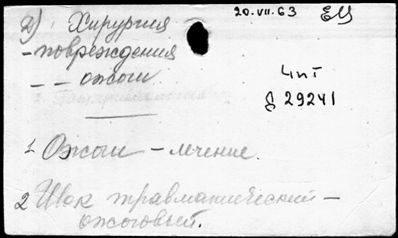 20.VII.63
д) Хирургия
- повреждения
- - ожоги
Чит
29241
1 Ожоги - лечение.
2 Шок травматический -
ожоговый.